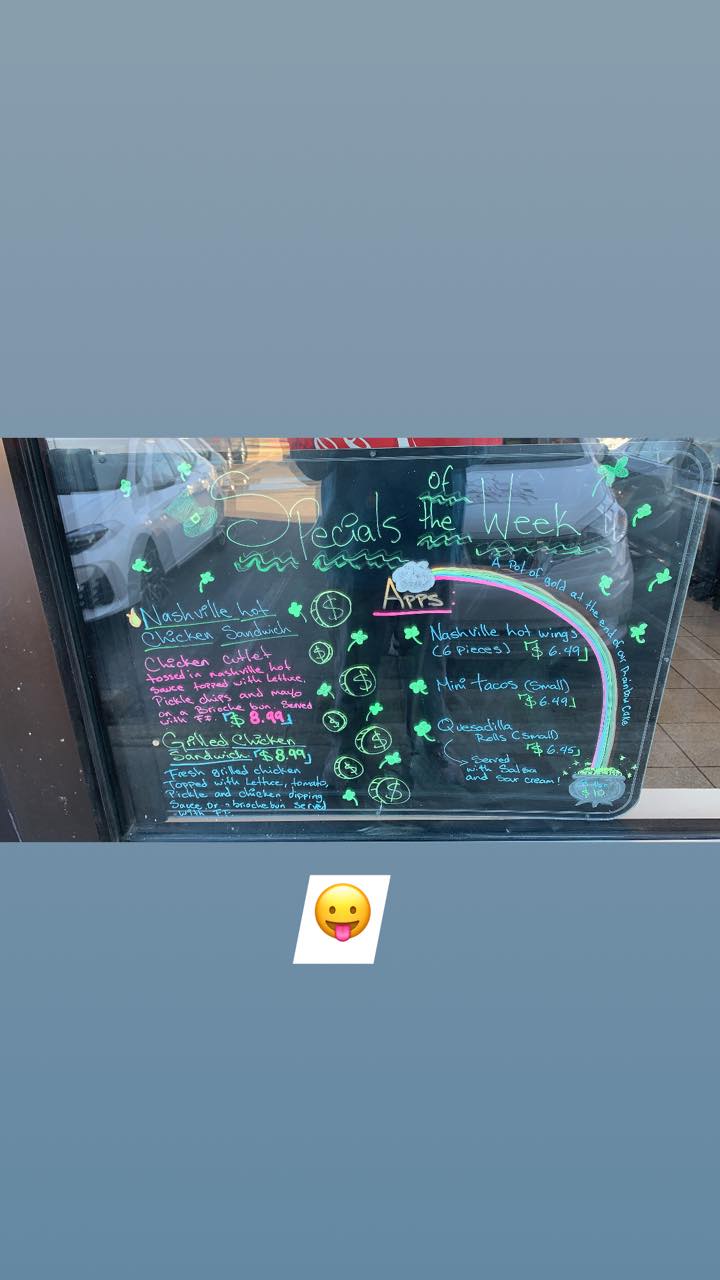 Specials of the Week
Nashville hot
Chicken Sandwich
Chicken Cutlet
tossed in nashville hot
sauce topped with lettuce,
Pickle chips and mayo
on a Brioche bun. Served
with F.F. $ 8.99
Grilled Chicken
Sandwich $8.99
Fresh Grilled chicken
Topped with Lettuce, tomato,
Pickle and chicken dipping
Sauce, on a brioche bun served
with F.F.
$
$
$
$
$
$
$
Apps:
Nashville hot wings
(6 pieces) $6.49
Mini tacos (small)
$6.49
Quesadilla
Rolls (small)
$6.45
Served
with Salsa
and Sour cream!
A Pot of Gold at the end of our Rainbow Cake
$10